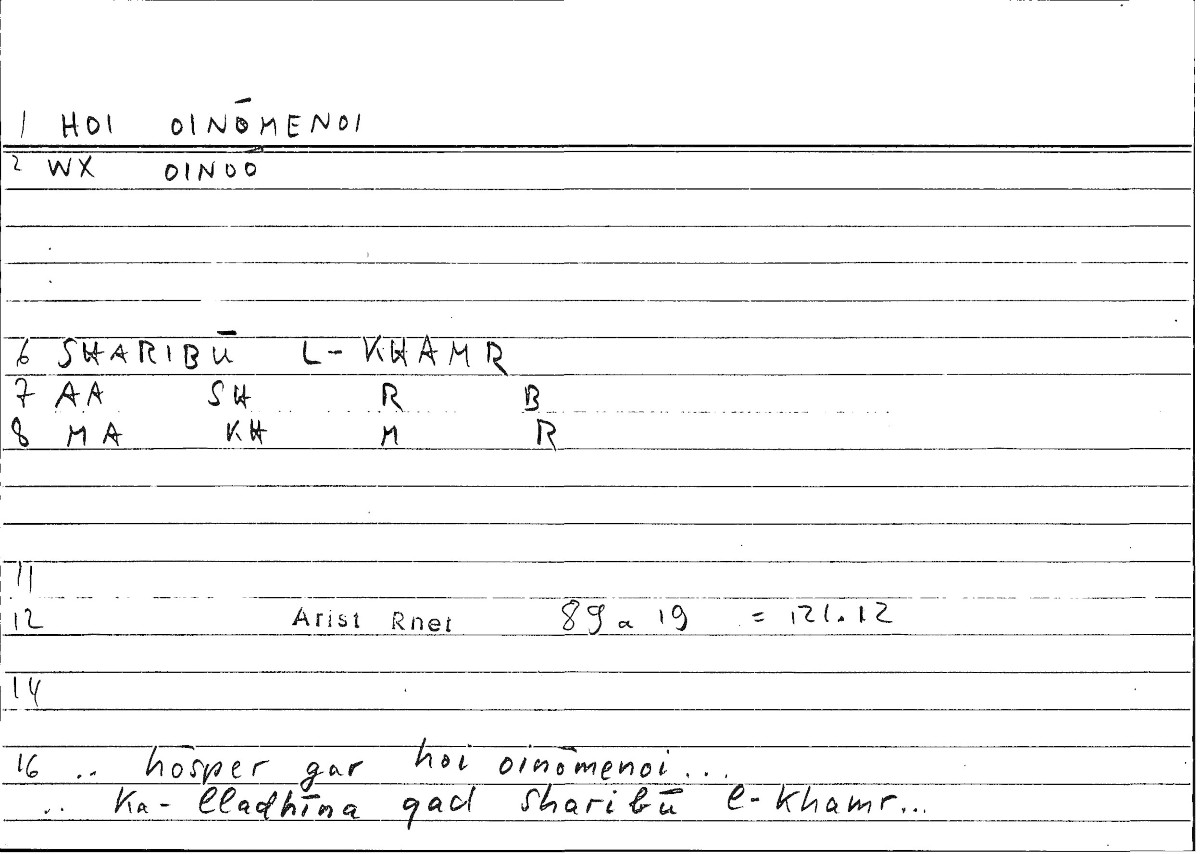 1 HOI OINŌMENOI
2 WX OINOŌ
6 SHARIBŪ L-KHAMR
7 AA SH R B
8 MA KH M R
11
12 Arist Rhet 89 a 19 = 121.12
14
16 .. hōsper gar hoi oinōmenoi...
.. Ka-lladhīna qad sharibū l-khamr...